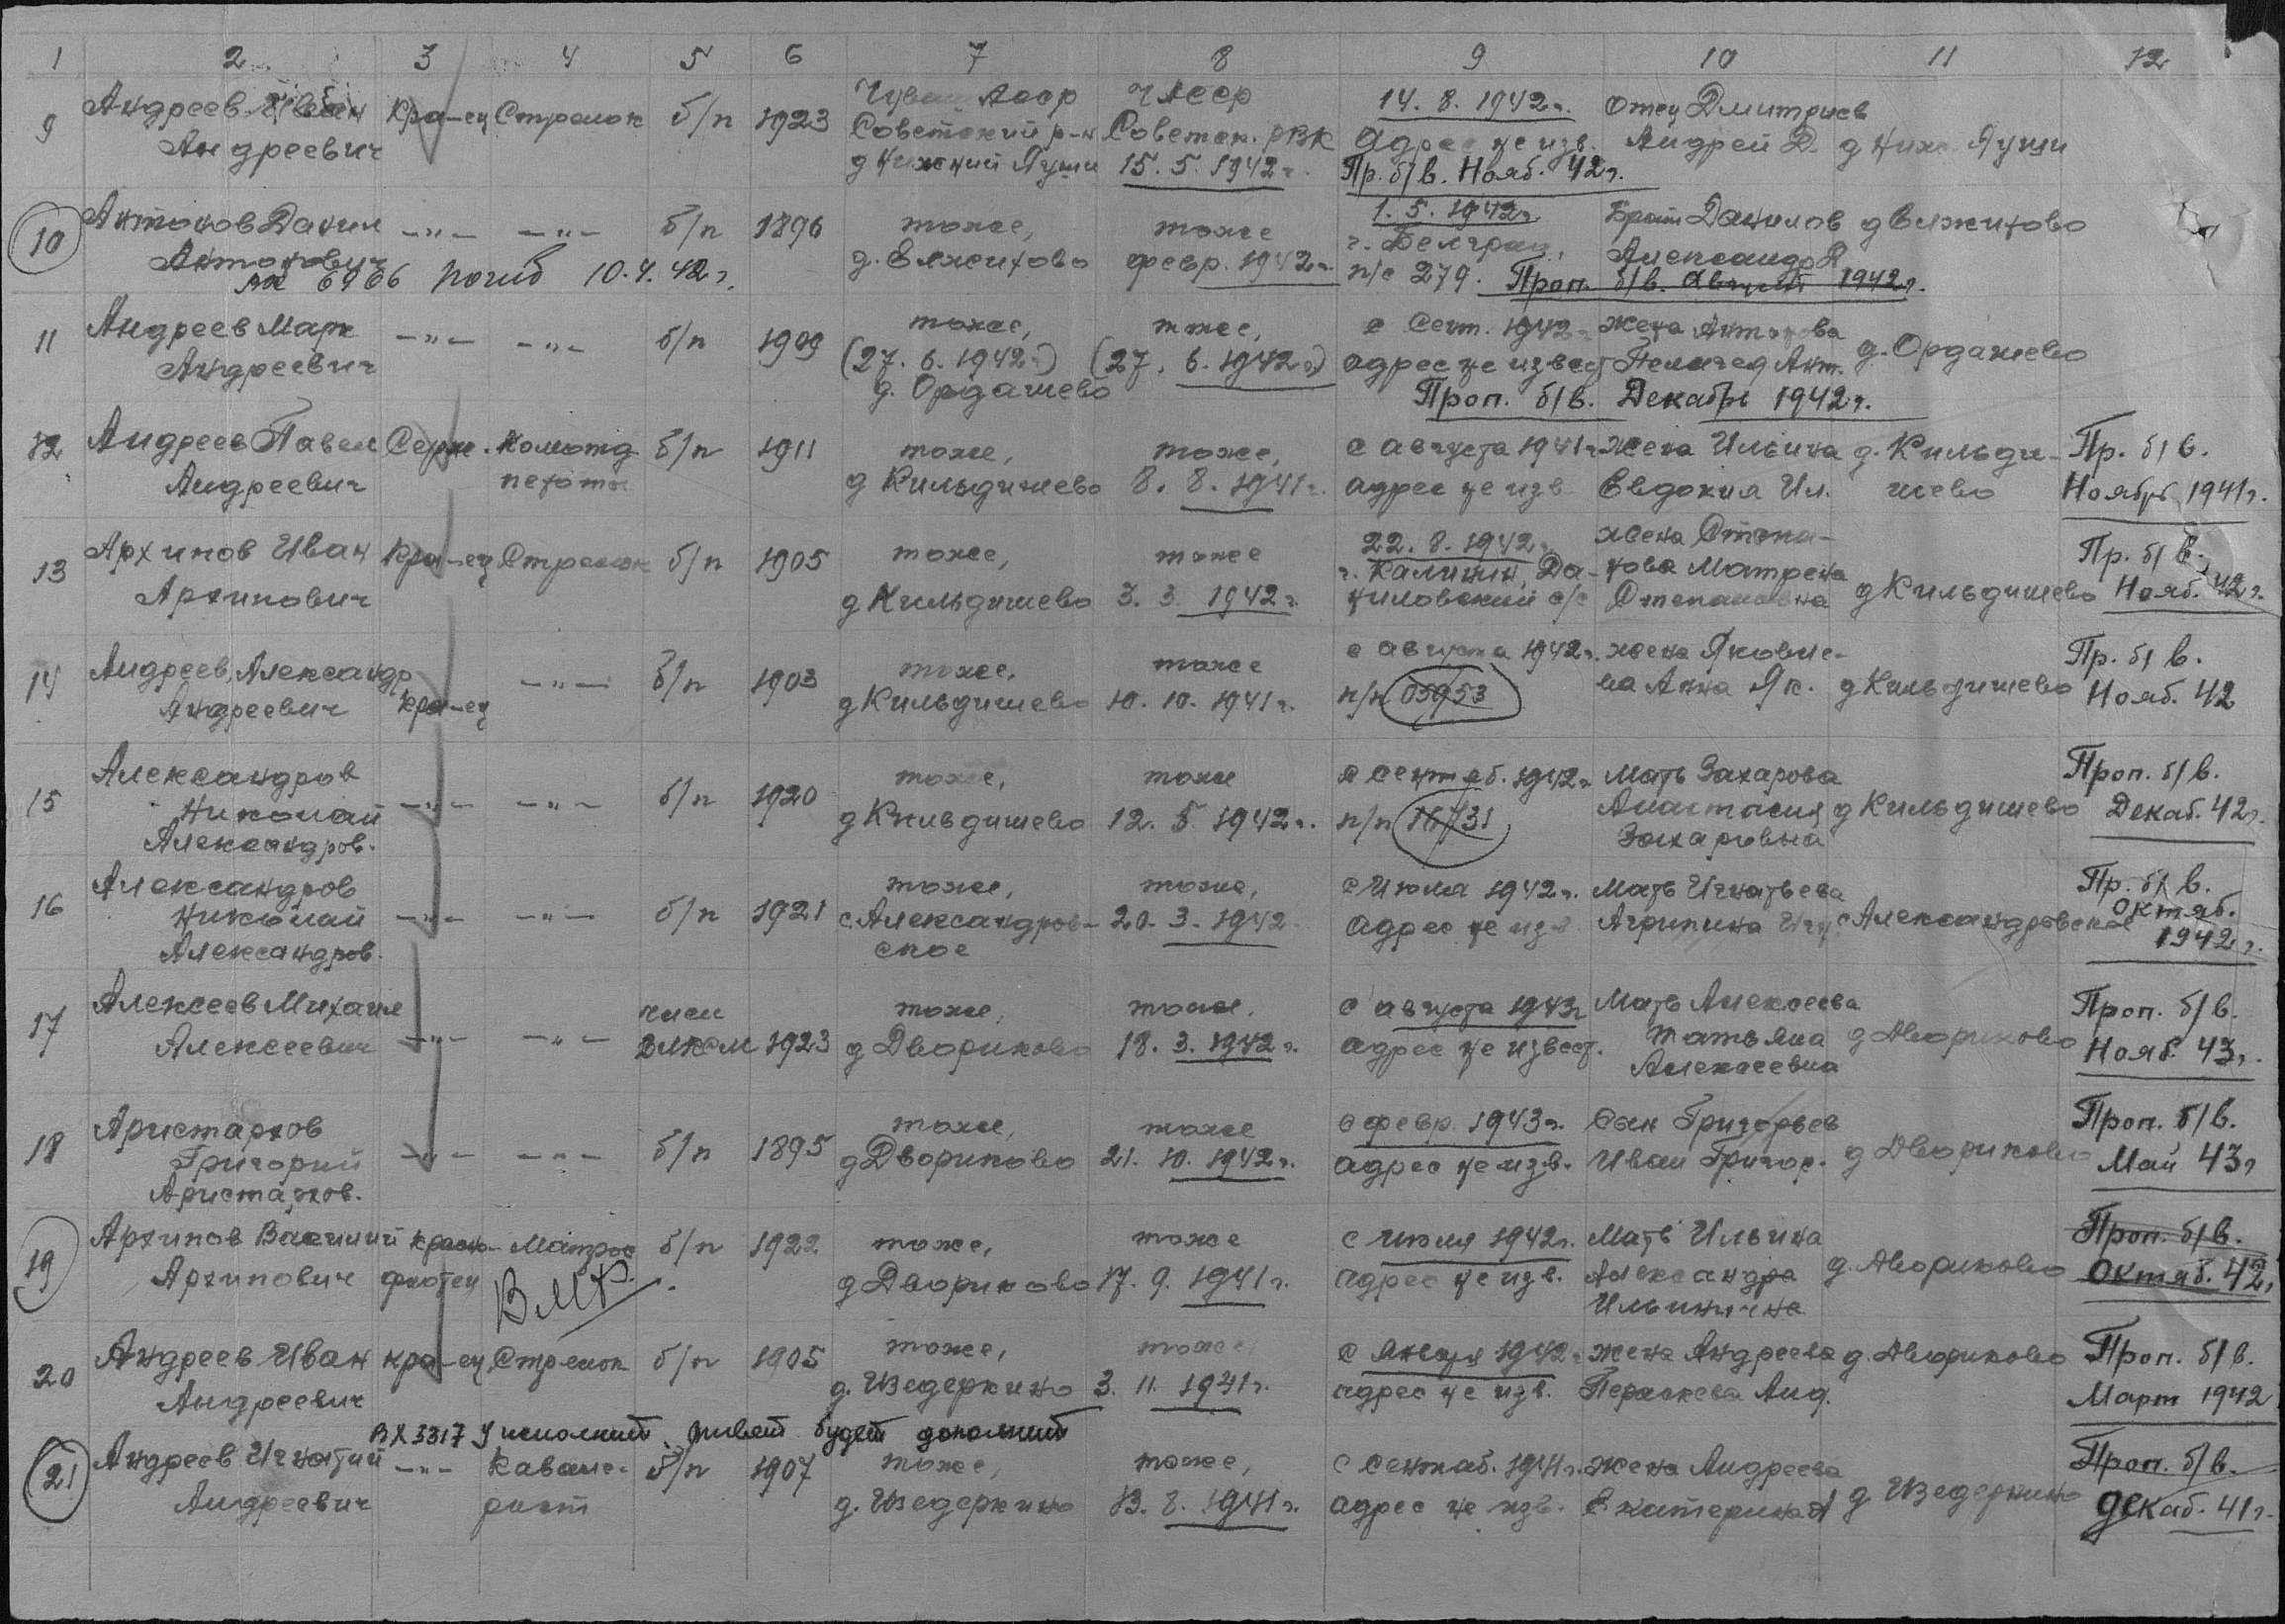 1 2 3 4 5 6 7 8 9 10 11 12
9 Андреев Иван Андреевич кра-ец Стрелок б/п 1923 Чуваш АССР Советский р-н д Нижний Яуши ЧАССР Советск. РВК 15.5.1942г. 14.8.1942г. Адрес не изв. отец Дмитриев Андрей Д. д Ниж Яуши
Пр. б/в. Нояб. 42г.
10 Антонов Данил Антонович -"- -"- б/п 1896 тоже, д. Вяжитово тоже февр. 1942г. 1.5.1942г. п/с 279. Брат Данилов Александр Д д Вяжитово
6966 погиб 10.4.42г. Проп. б/в. Август 1942г.
11 Андреев Марк Андреевич -"- -"- б/п 1909 тоже, (27.6.1942г) д. Ордашево тоже, (27.6.1942г) с Сент. 1942г адрес не извест жена Антонова Пелагея Ант. д. Ордашево
Проп. б/в. Декабрь 1942г.
12 Андреев Павел Андреевич Серж. Комотд пехоты б/п 1911 тоже, д Кильдишево тоже, 8.8.1941г. с августа 1941г адрес не изв. жена Ильина Евдокия Ил. д. Кильдишево Пр. б/в. Ноябрь 1941г.
13 Архипов Иван Архипович кра-ец Стрелок б/п 1905 тоже, д Кильдишево тоже 3.3.1942г. 22.8.1942г. г. Калинин, Даниловский с/с жена Степанова Матрена Степановна д Кильдишево Пр. б/в. Нояб. 42г.
14 Андреев Александр Андреевич кра-ец -"- б/п 1903 тоже, д Кильдишево тоже 10.10.1941г. с августа 1942г. п/п 05953 жена Яковлева Анна Як. д Кильдишево Пр. б/в. Нояб. 42
15 Александров Николай Александров. -"- -"- б/п 1920 тоже, д Кильдишево тоже 12.5.1942г. с сентяб. 1942г п/п Мать Захарова Анастасия Захаровна д Кильдишево Проп. б/в. Декаб. 42г.
16 Александров Николай Александров. -"- -"- б/п 1921 тоже, с. Александровское тоже, 20.3.1942 с Июля 1942г. адрес не изв Мать Игнатьева Агрипина Игн с Александровское Пр. б/в. Октяб. 1942г.
17 Алексеев Михаил Алексеевич -"- -"- член ВЛКСМ 1923 тоже, д Двориково тоже, 18.3.1942г. с августа 1943г адрес не извест. Мать Алексеева Татьяна Алексеевна д Двориково Проп. б/в. Нояб. 43г.
18 Аристархов Григорий Аристархов. -"- -"- б/п 1895 тоже, д Двориково тоже 21.10.1942г. с февр. 1943г. адрес не изв. Сын Григорьев Иван Григор. д Двориково Проп. б/в. Май 43г
19 Архипов Василий Архипович краснофлотец Матрос ВМФ. б/п 1922 тоже, д Двориково тоже 17.9.1941г. с июля 1942г. адрес не изв. Мать Ильина Александра Ильинична д. Двориково Проп. б/в. Октяб. 42г.
20 Андреев Иван Андреевич кра-ец Стрелок б/п 1905 тоже, д. Изедеркино тоже 3.11.1941г. с Января 1942г адрес не изв. жена Андреева Анд. д. Двориково Проп. б/в. Март 1942
ВХ 3317 будет
21 Андреев Игнатий Андреевич -"- Кавалерист б/п 1907 тоже, д. Изедеркино тоже, 13.8.1941г. с Сентяб. 1941г. адрес не изв. жена Андреева Екатерина А д Изедеркино Проп. б/в. Декаб. 41г.